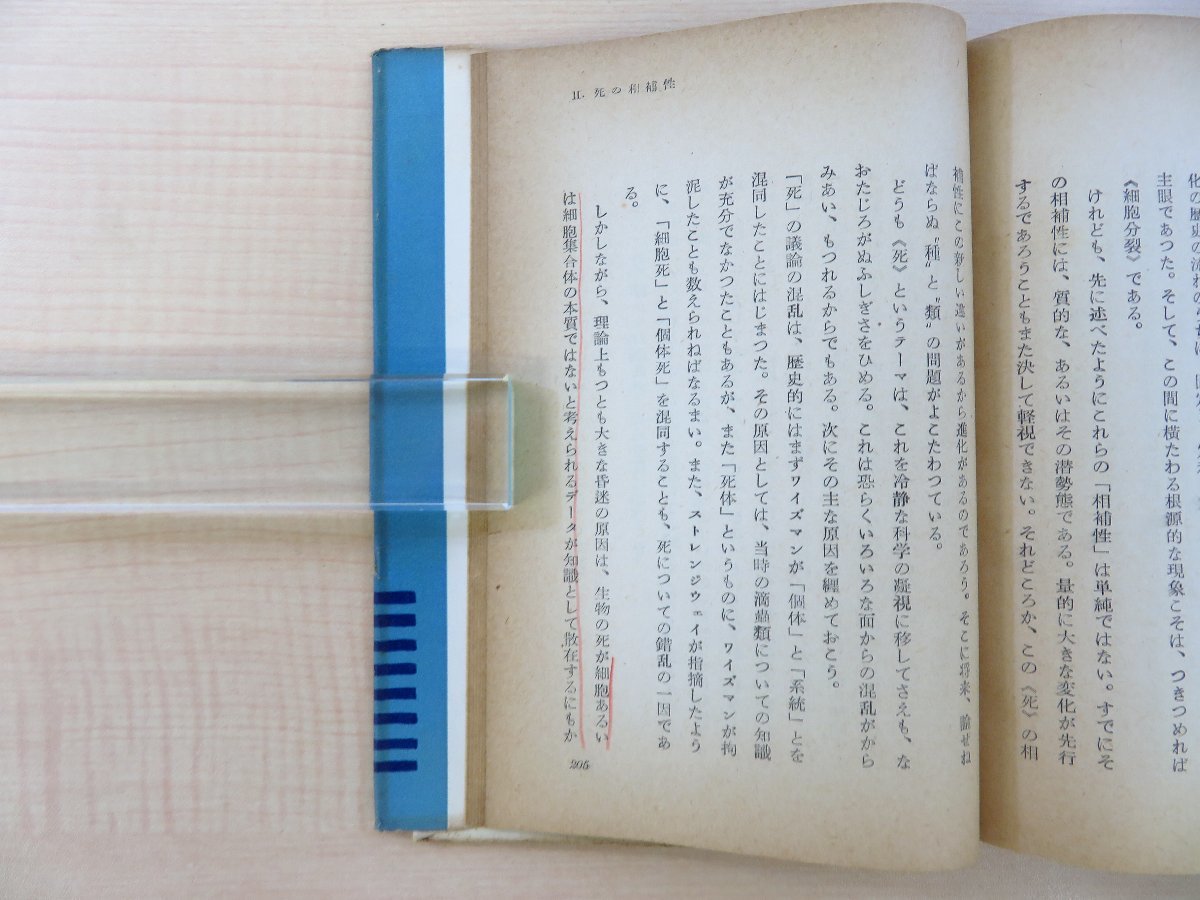 主眼であつた。そして、この間に横たわる根源的な現象こそは、つきつめれば
《細胞分裂》である。
けれども、先に述べたようにこれらの「相補性」は単純ではない。すでにそ
の相補性には、質的な、あるいはその潜勢態である。量的に大きな変化が先行
するであろうこともまた決して軽視できない。それどころか、この《死》の相
II. 死の相補性
補性にこの新しい違いがあるから進化があるのであろう。そこに将来、論ぜね
ばならぬ〝種〟と〝類〟の問題がよこたわつている。
どうも《死》というテーマは、これを冷静な科学の凝視に移してさえも、な
おたじろがぬふしぎさをひめる。これは恐らくいろいろな面からの混乱がから
みあい、もつれるからでもある。次にその主な原因を纒めておこう。
「死」の議論の混乱は、歴史的にはまずワイズマンが「個体」と「系統」とを
混同したことにはじまつた。その原因としては、当時の滴蟲類についての知識
が充分でなかつたこともあるが、また「死体」というものに、ワイズマンが拘
泥したことも数えられねばなるまい。また、ストレンジウェイが指摘したよう
に、「細胞死」と「個体死」を混同することも、死についての錯乱の一因であ
る。
しかしながら、理論上もつとも大きな昏迷の原因は、生物の死が細胞あるい
は細胞集合体の本質ではないと考えられるデータが知識として散在するにもか
205